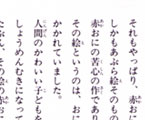 それもやっぱり、
赤おにの苦心の作であり
しかもあぶら絵そのもの
その絵というのは、おに
かかれていました。
人間のかわいい子どもを
しょうめんむきになって
たぶん、その絵の赤